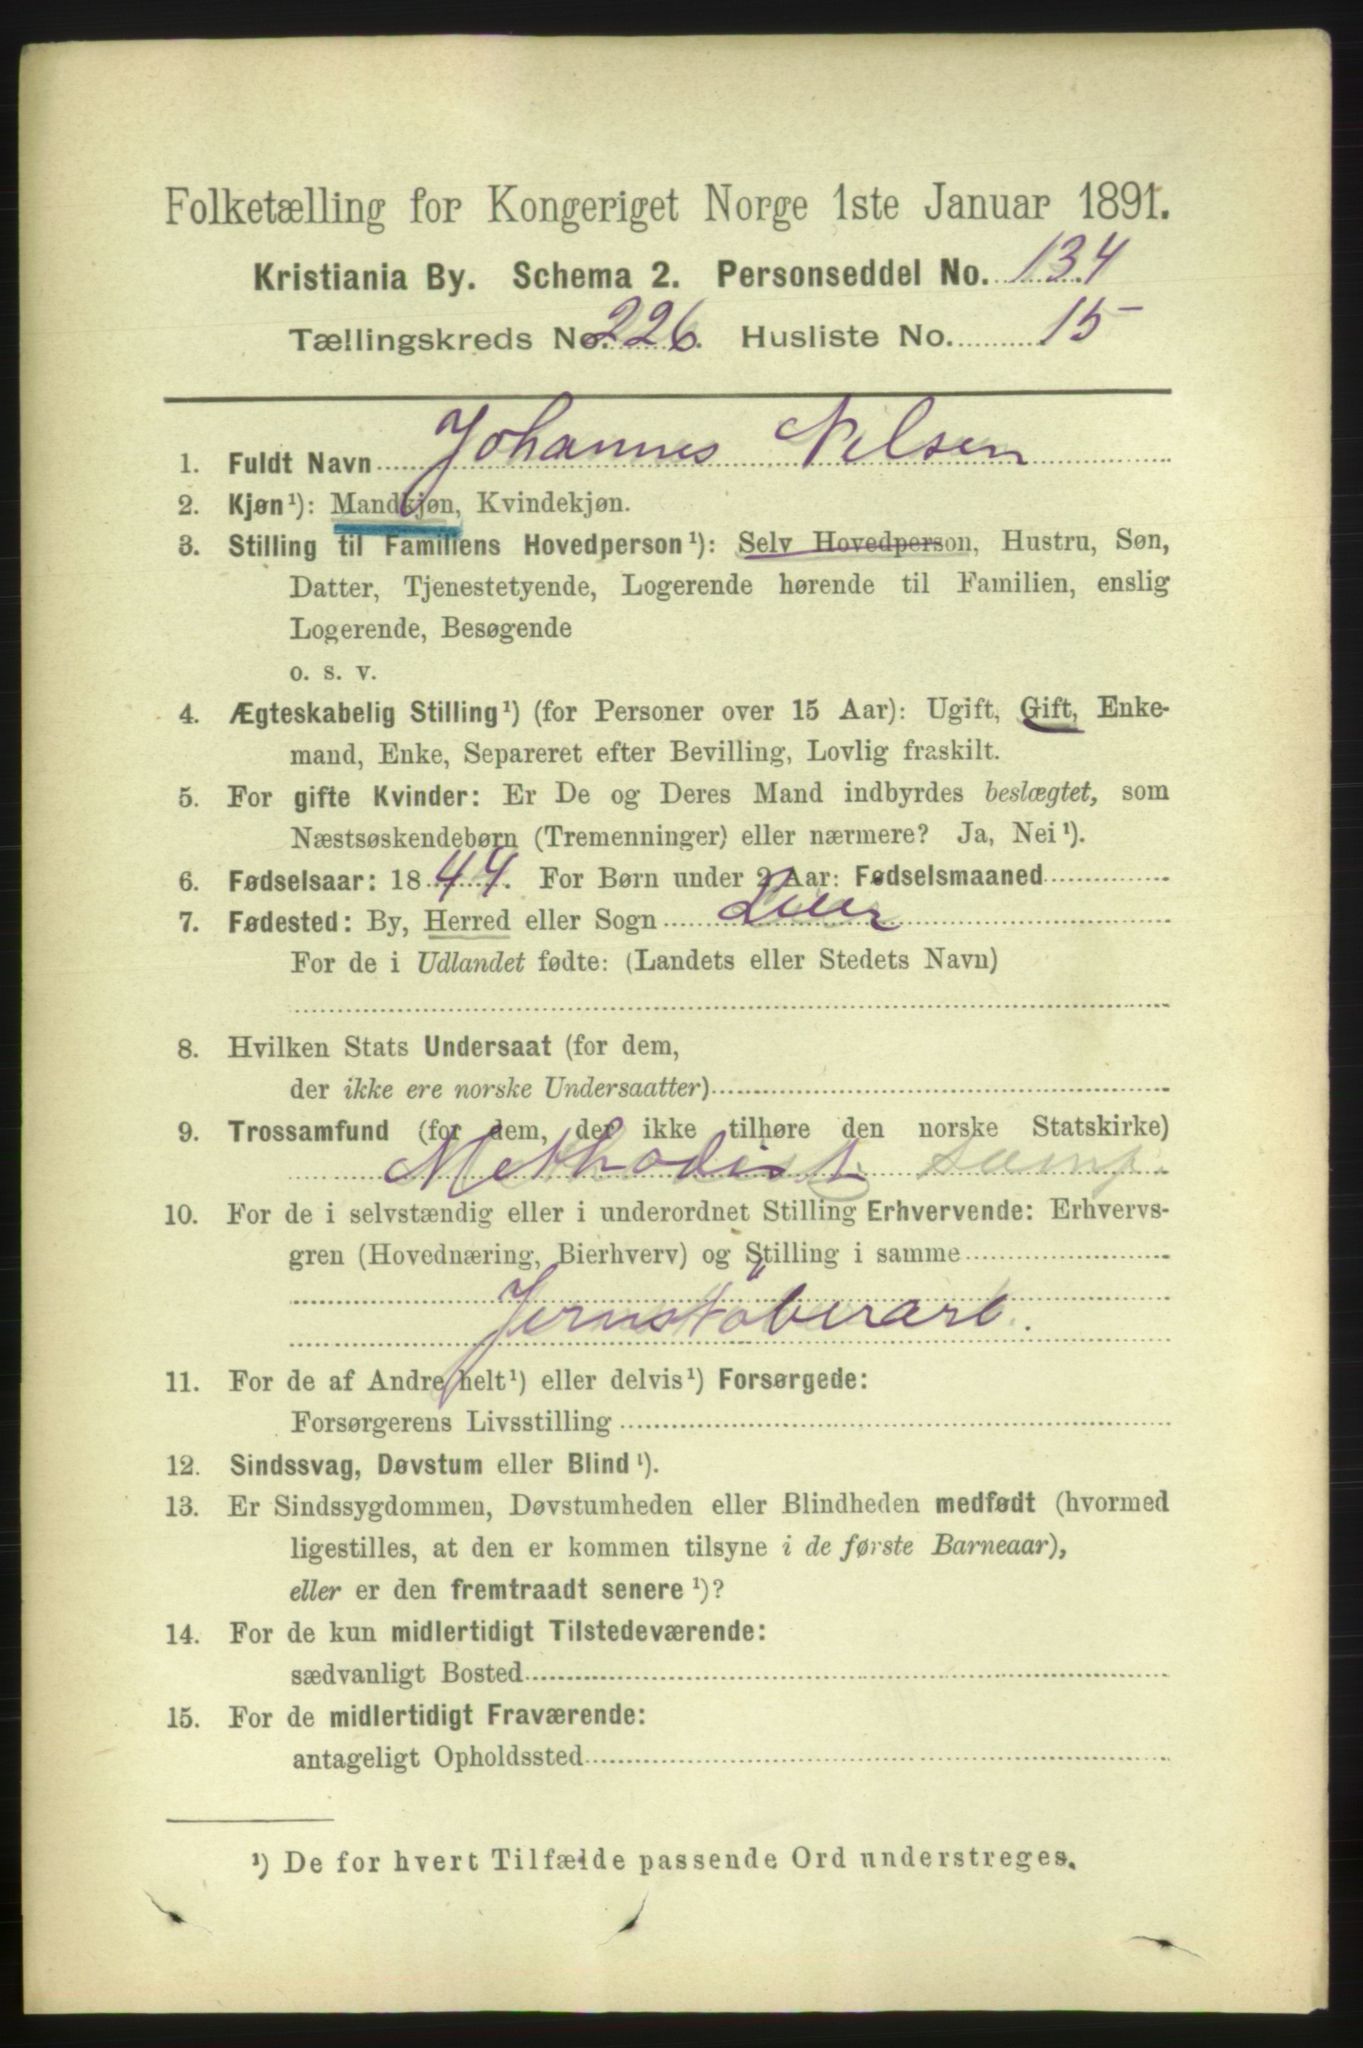 Folketælling for Kongeriget Norge 1ste Januar 1891.
Kristiania By. Schema 2. Personseddel No. 134
Tællingskreds No. 226. Husliste No. 15
1. Fuldt Navn Johannes Nilsen
2. Kjøn¹): Mandkjøn, Kvindekjøn.
3. Stilling til Familiens Hovedperson¹): Selv Hovedperson, Hustru, Søn,
Datter, Tjenestetyende, Logerende hørende til Familien, enslig
Logerende, Besøgende
o. s. v.
4. Ægteskabelig Stilling¹) (for Personer over 15 Aar): Ugift, Gift, Enke-
mand, Enke, Separeret efter Bevilling, Lovlig fraskilt.
5. For gifte Kvinder: Er De og Deres Mand indbyrdes beslægtet, som
Næstsøskendebørn (Tremenninger) eller nærmere? Ja, Nei¹).
6. Fødselsaar: 1844. For Børn under 2 Aar: Fødselsmaaned
7. Fødested: By, Herred eller Sogn Lier
For de i Udlandet fødte: (Landets eller Stedets Navn)
8. Hvilken Stats Undersaat (for dem,
der ikke ere norske Undersaatter)
9. Trossamfund (for dem, der ikke tilhøre den norske Statskirke)
Methodist samf.
10. For de i selvstændig eller i underordnet Stilling Erhvervende: Erhvervs-
gren (Hovednæring, Bierhverv) og Stilling i samme
Jernstöberarb.
11. For de af Andre helt¹) eller delvis¹) Forsørgede:
Forsørgerens Livsstilling
12. Sindssvag, Døvstum eller Blind¹).
13. Er Sindssygdommen, Døvstumheden eller Blindheden medfødt (hvormed
ligestilles, at den er kommen tilsyne i de første Barneaar),
eller er den fremtraadt senere¹)?
14. For de kun midlertidigt Tilstedeværende:
sædvanligt Bosted
15. For de midlertidigt Fraværende:
antageligt Opholdssted
¹) De for hvert Tilfælde passende Ord understreges.